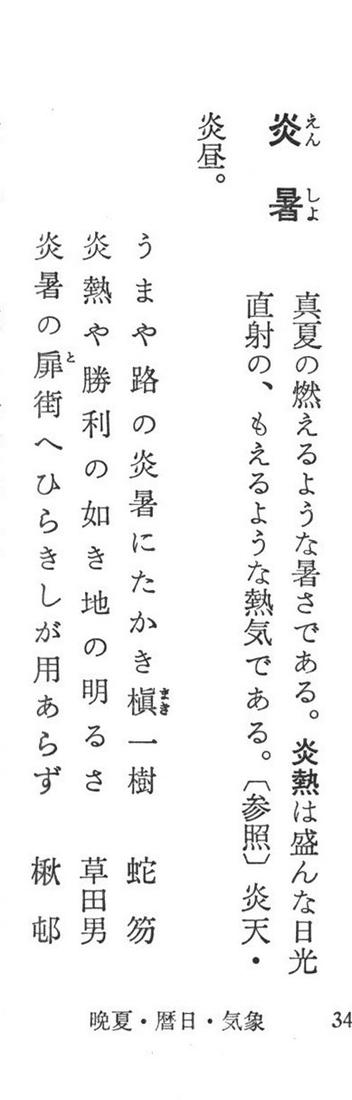 炎暑
えんしよ
真夏の燃えるような暑さである。炎熱は盛んな日光
直射の、もえるような熱気である。〔参照〕炎天・
炎昼。
うまや路の炎暑にたかき槇一樹　蛇笏
まき
炎熱や勝利の如き地の明るさ　草田男
炎暑の扉街へひらきしが用あらず　楸邨
と
晩夏・暦日・気象
34